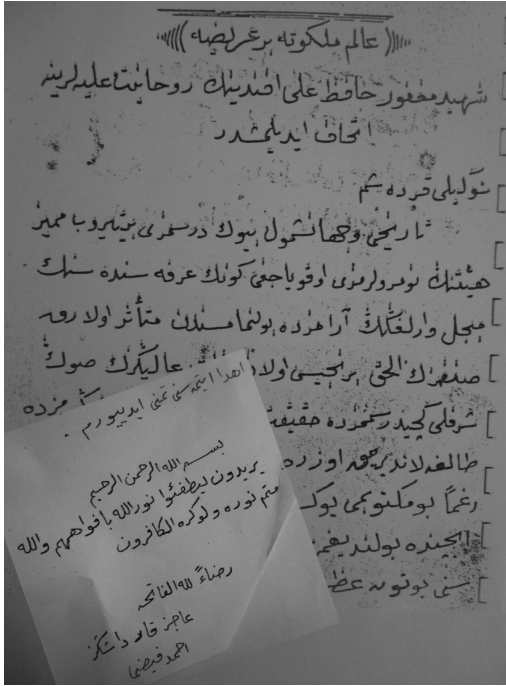 عالم ملكوته بر عريضه
شهيد مغفور حافظ علی افندينك روحانيت عليه لرينه
اتحاف ايديلمشدر
سوكيلی قرده شم
تاريخی و جهانشمول بيوك درسمزی بيتيروب مميز
هيئتنك نومرولرمزی اوقوياجغی كونك عرفه سنده سنك
مبجل وارلغكك آرامزده بولنمامسندن متأثر اولارق
صنفمزك الحق برنجيسی اولان عاليكزك صوك
شرفلی كچيد رسممزده حقيقت مزده
اوزره
رغماً بو مكتوبمی يوك
ايچنده بولنديغمز
سنی بوتون عظ
اهدا ايتمه سنی تمنی ايدييورم .
بسم الله الرحمن الرحيم
يريدون ليطفئوا نور الله بافواههم والله
متم نوره ولو كره الكافرون
رضاءً لله الفاتحه
عاجز قارداشكز
احمد فيضی